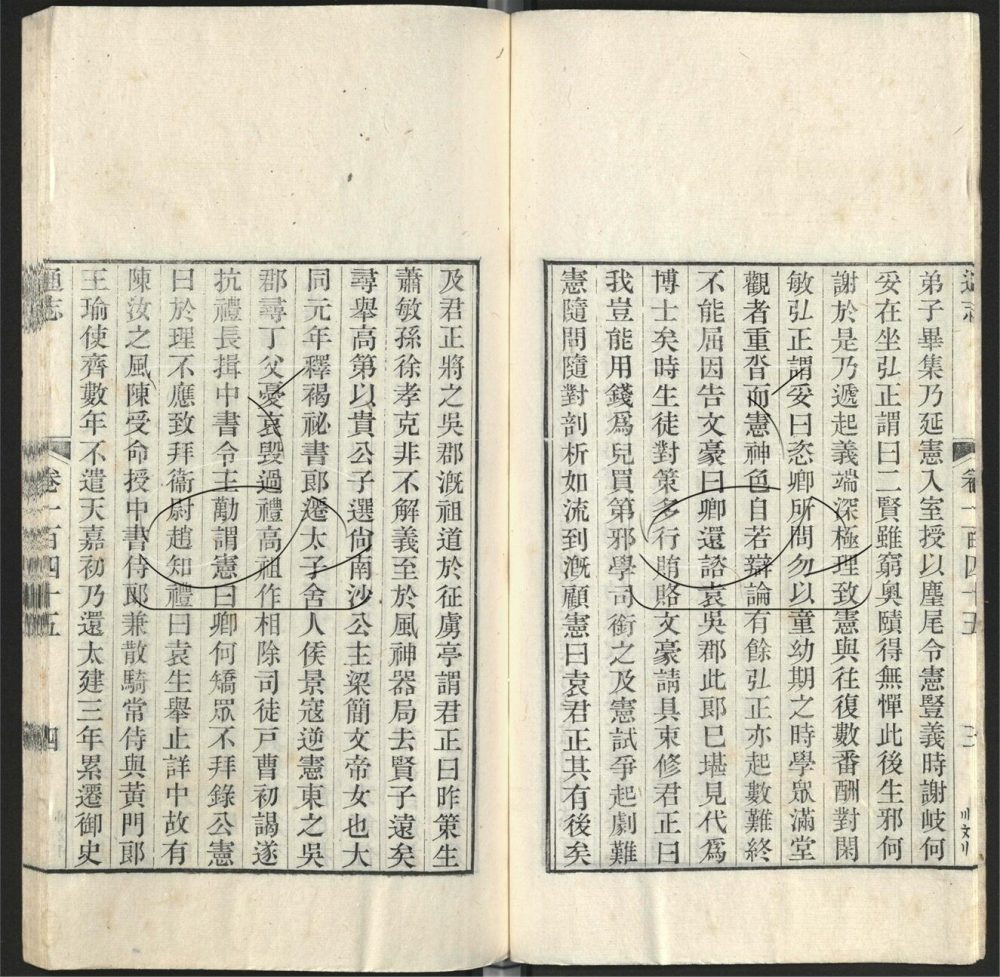 弟子畢集乃延憲入室授以麈尾令憲豎義時謝岐何
妥在坐弘正謂曰二賢雖窮奧賾得無憚此後生邪何
謝於是乃遞起義端深極理致憲與往復數番酬對閑
敏弘正謂妥曰恣卿所問勿以童幼期之時學眾滿堂
觀者重沓而憲神色自若辯論有餘弘正亦起數難終
不能屈因告文豪曰卿還諮袁吳郡此郎已堪見代為
博士矣時生徒對策多行賄賂文豪請具束修君正曰
我豈能用錢為兒買第邪學司銜之及憲試爭起劇難
憲隨問隨對剖析如流到溉顧憲曰袁君正其有後矣
及君正將之吳郡溉祖道於征虜亭謂君正曰昨策生
蕭敏孫徐孝克非不解義至於風神器局去賢子遠矣
尋舉高第以貴公子選尚南沙公主梁簡文帝女也大
同元年釋褐祕書郎遷太子舍人侯景寇逆憲東之吳
郡尋丁父憂哀毀過禮高祖作相除司徒戶曹初謁遂
抗禮長揖中書令王勱謂憲曰卿何矯眾不拜錄公憲
曰於理不應致拜衞尉趙知禮曰袁生舉止詳中故有
陳汝之風陳受命授中書侍郎兼散騎常侍與黃門郎
王瑜使齊數年不遣天嘉初乃還太建三年累遷御史
通志 卷一百四十五 四